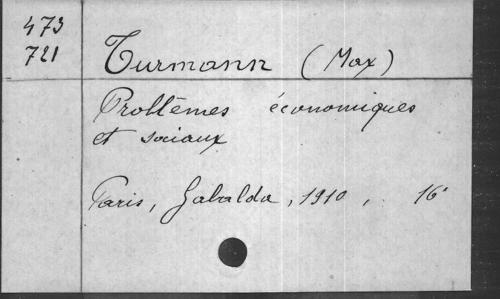 473
721
Turmann (Max)
Problèmes économiques
et sociaux
Paris, Gabalda, 1910, 16°